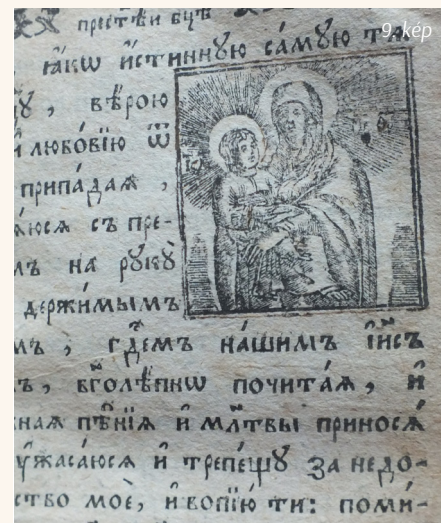 9. kép
прест҃ѣй бц҃ѣ
ꙗ҆́кѡ и҆́стиннꙋю са́мꙋю
вѣ́рою
любо́вїю ѿ
припа́даѧ ,
съ пре-
на рꙋкꙋ̀
держи́мымъ
гдⷭ҇емъ на́шимъ і҆и҃съ
бг҃олѣ́пнѡ почита́ѧ , и҆
пѣ̑нїѧ и҆ мл҃твы приносѧ̀
ᲂу҆жаса́юсѧ и҆ трепе́щꙋ за недо-
ство моѐ , и҆ вопїю́ ти : поми-